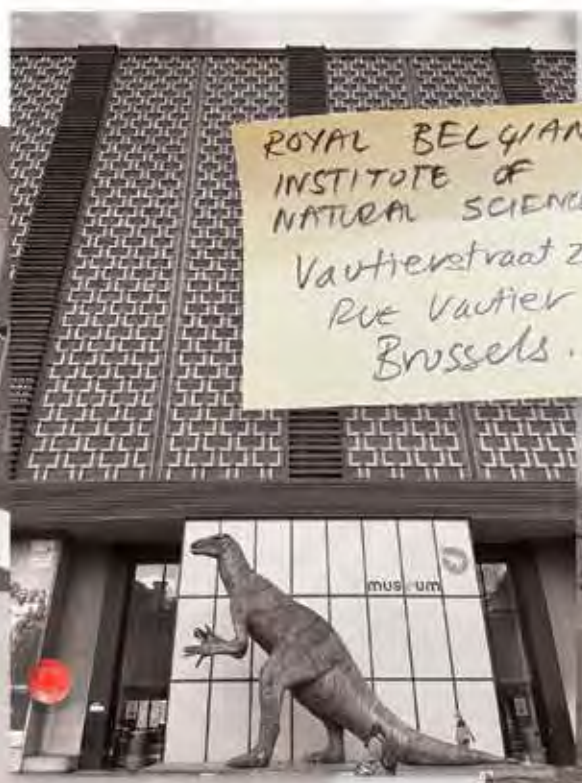 ROYAL BELGIAN
INSTITUTE OF
NATURAL SCIENC
Vautierstraat 2
Rue Vautier
Brussels.
museum